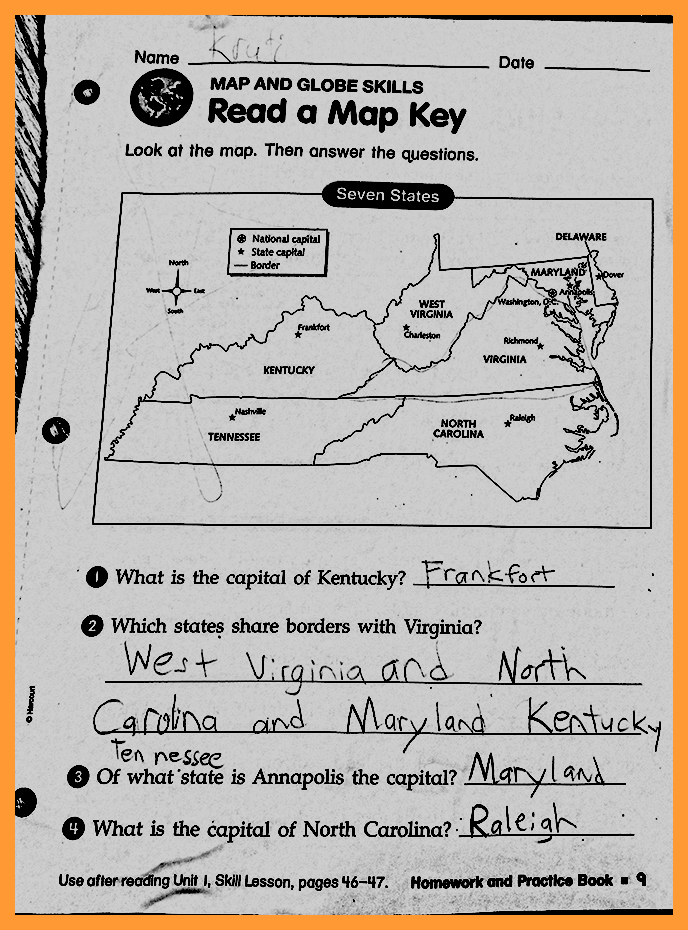 Name Kruti Date
MAP AND GLOBE SKILLS
Read a Map Key
Look at the map. Then answer the questions.
Seven States
National capital
State capital
Border
North
West East
South
DELAWARE
MARYLAND
Dover
Annapolis
Washington, D.C.
WEST
VIRGINIA
Charleston
Frankfort
Richmond
VIRGINIA
KENTUCKY
Nashville
TENNESSEE
NORTH
CAROLINA
Raleigh
1 What is the capital of Kentucky? Frankfort
2 Which states share borders with Virginia?
West Virginia and North
Carolina and Maryland Kentucky
Tennessee
3 Of what state is Annapolis the capital? Maryland
4 What is the capital of North Carolina? Raleigh
© Harcourt
Use after reading Unit 1, Skill Lesson, pages 46–47. Homework and Practice Book ■ 9